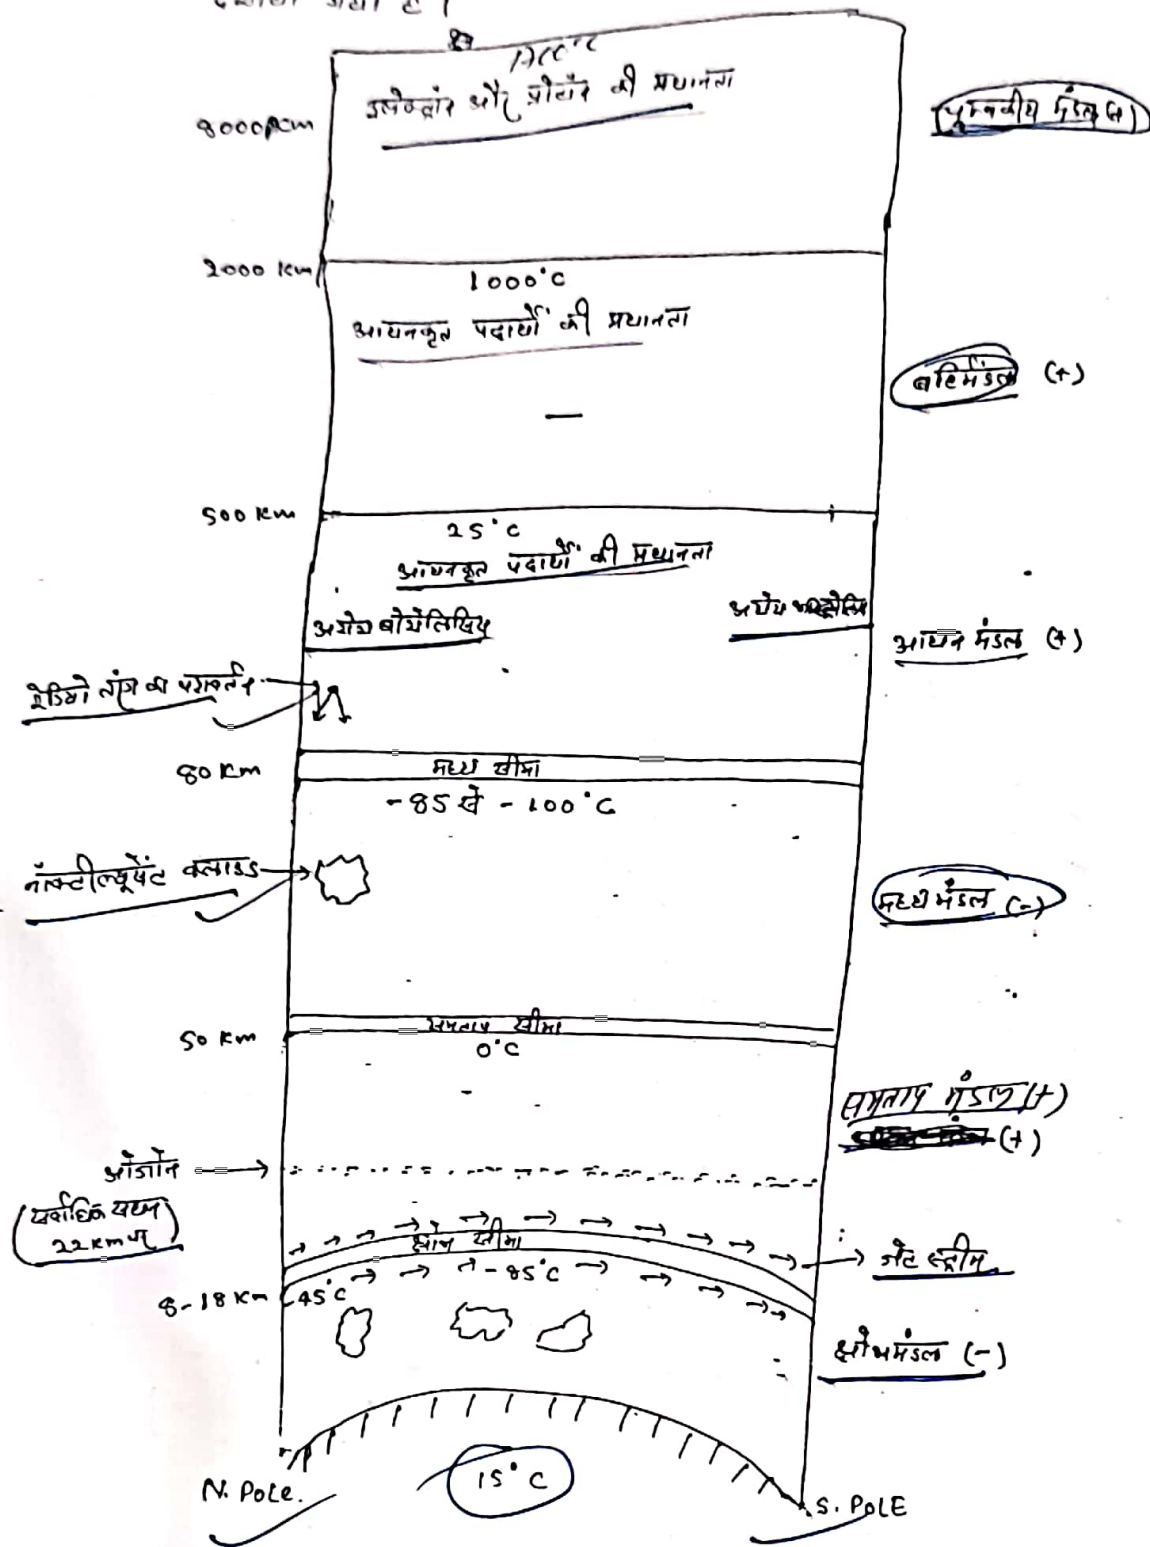 दर्शाया गया है।
इलेक्ट्रॉन और प्रोटॉन की प्रधानता
8000 Km
चुम्बकीय मंडल (+)
2000 Km
1000°C
आयनकृत पदार्थों की प्रधानता
बहिर्मंडल (+)
500 Km
25°C
आयनकृत पदार्थों की प्रधानता
अरोरा बोरेलिसिय
अरोरा
आयन मंडल (+)
रेडियो तरंग का परावर्तन
80 Km
मध्य सीमा
-85 से -100°C
नॉक्टील्यूसेंट क्लाउड
मध्य मंडल (-)
समताप सीमा
50 Km
0°C
समताप मंडल (+)
(+)
ओजोन
(सर्वाधिक सघन
22 km पर)
क्षोभ सीमा
जेट स्ट्रीम
-85°C
8-18 Km
-45°C
क्षोभमंडल (-)
15°C
N. POLE.
S. POLE